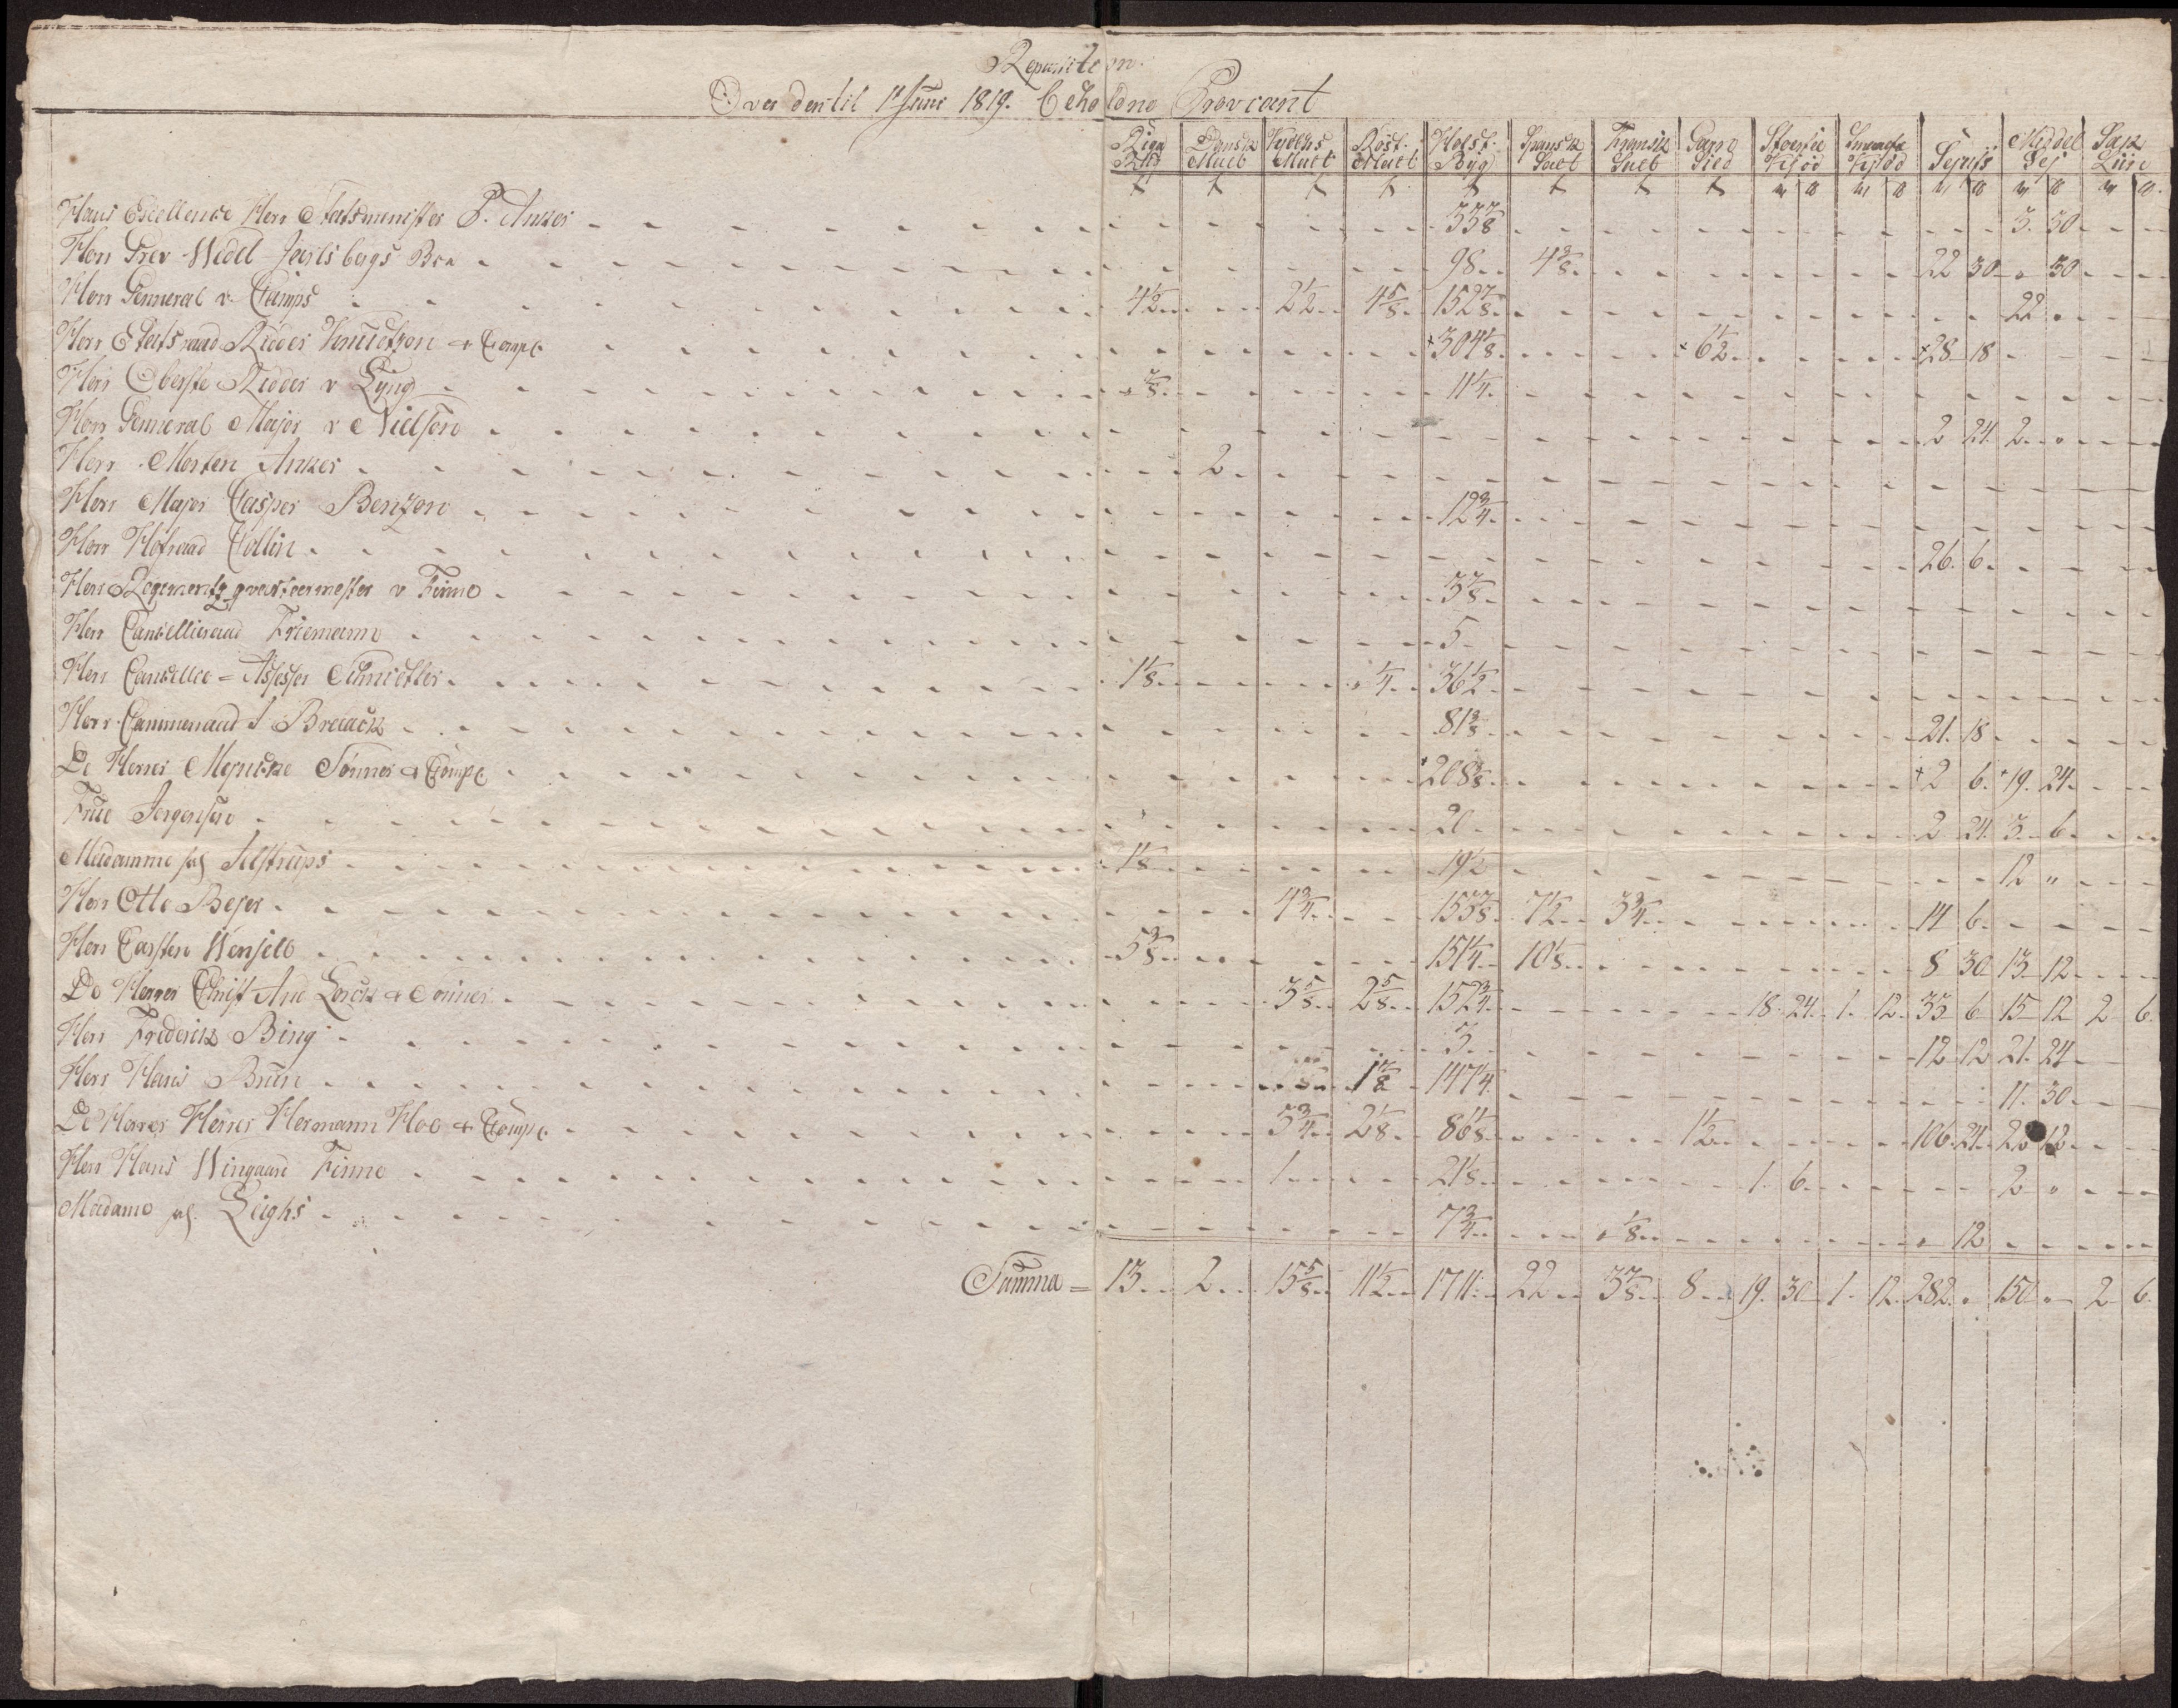 Repartition
Over den til 1e Juni 1819. beholdne Proviant
Riga Dansk Tydsks Rost. Holst. Spansk Fransk Garn Stoersei Smaasei Sejvüs Middel Sax
Rug Malt Malt Malt Byg Salt Salt Sild Kjød Kjød Sej Süre
Hans Exellence Herr Statsminister P. Anker 33 7/8 3. 30
Herr Grev Wedel Jarlsbergs Boe 98 4 3/8 22 30 " 30
Herr General v. Camps 4 1/2 2 1/2 4 5/8 152 7/8 22 "
Herr Etatsraad Ridder Knudtzon & Comp. +304 1/8 +6 1/2 +28 18
Herr Oberste Ridder v Lÿng " 7/8 11 1/4
Herr General Major v Nielsen 2 24 2 "
Herr Morten Anker 2
Herr Major Casper Benzon 12 3/4
Herr Hofraad Collin 26. 6
Herr Regimentzqvarteermester v Finne 3 7/8
Herr Cancelliraad Friemann 5
Herr Cancellie=Assessor Schmettler 1 1/8 " 1/4 36 1/2
Herr Cammerraad J Braack 81 3/8 21. 18
De Herrer Meincke Sønner & Comp. +208 3/8 +2 6. +19. 24
Frue Jørgensen 20 2 24 3 6
Madamme sal Jelstrups 1 1/8 19 1/2 12 "
Herr Otte Beÿer 4 3/4 153 7/8 7 1/2 3 3/4 14 6
Herr Carsten Wensell 5 3/8 151 1/4 10 1/8 8 30 13 12
De Herrer Christ And Lorck & Sønner 3 5/8 2 5/8 152 3/4 18. 24 1. 12 33 6 15 12 2 6
Herr Frederick Bing 3 12 12 21. 24
Herr Hans Brun 1 7/8 147 1/4 11. 30
De Herrer Herrer Hermann Hoe & Comp. 3 3/4 2 1/8 86 1/8 1 1/2 106 24
Herr Hans Wingaard Finne 1 21 1/8 1. 6 2 "
Madame sal. Leighs 7 3/4 " 1/8 " 12
Summa = 13 2 15 5/8 11 1/2 1711 22 3 7/8 8 19. 30 1. 12 282 " 150 " 2 6